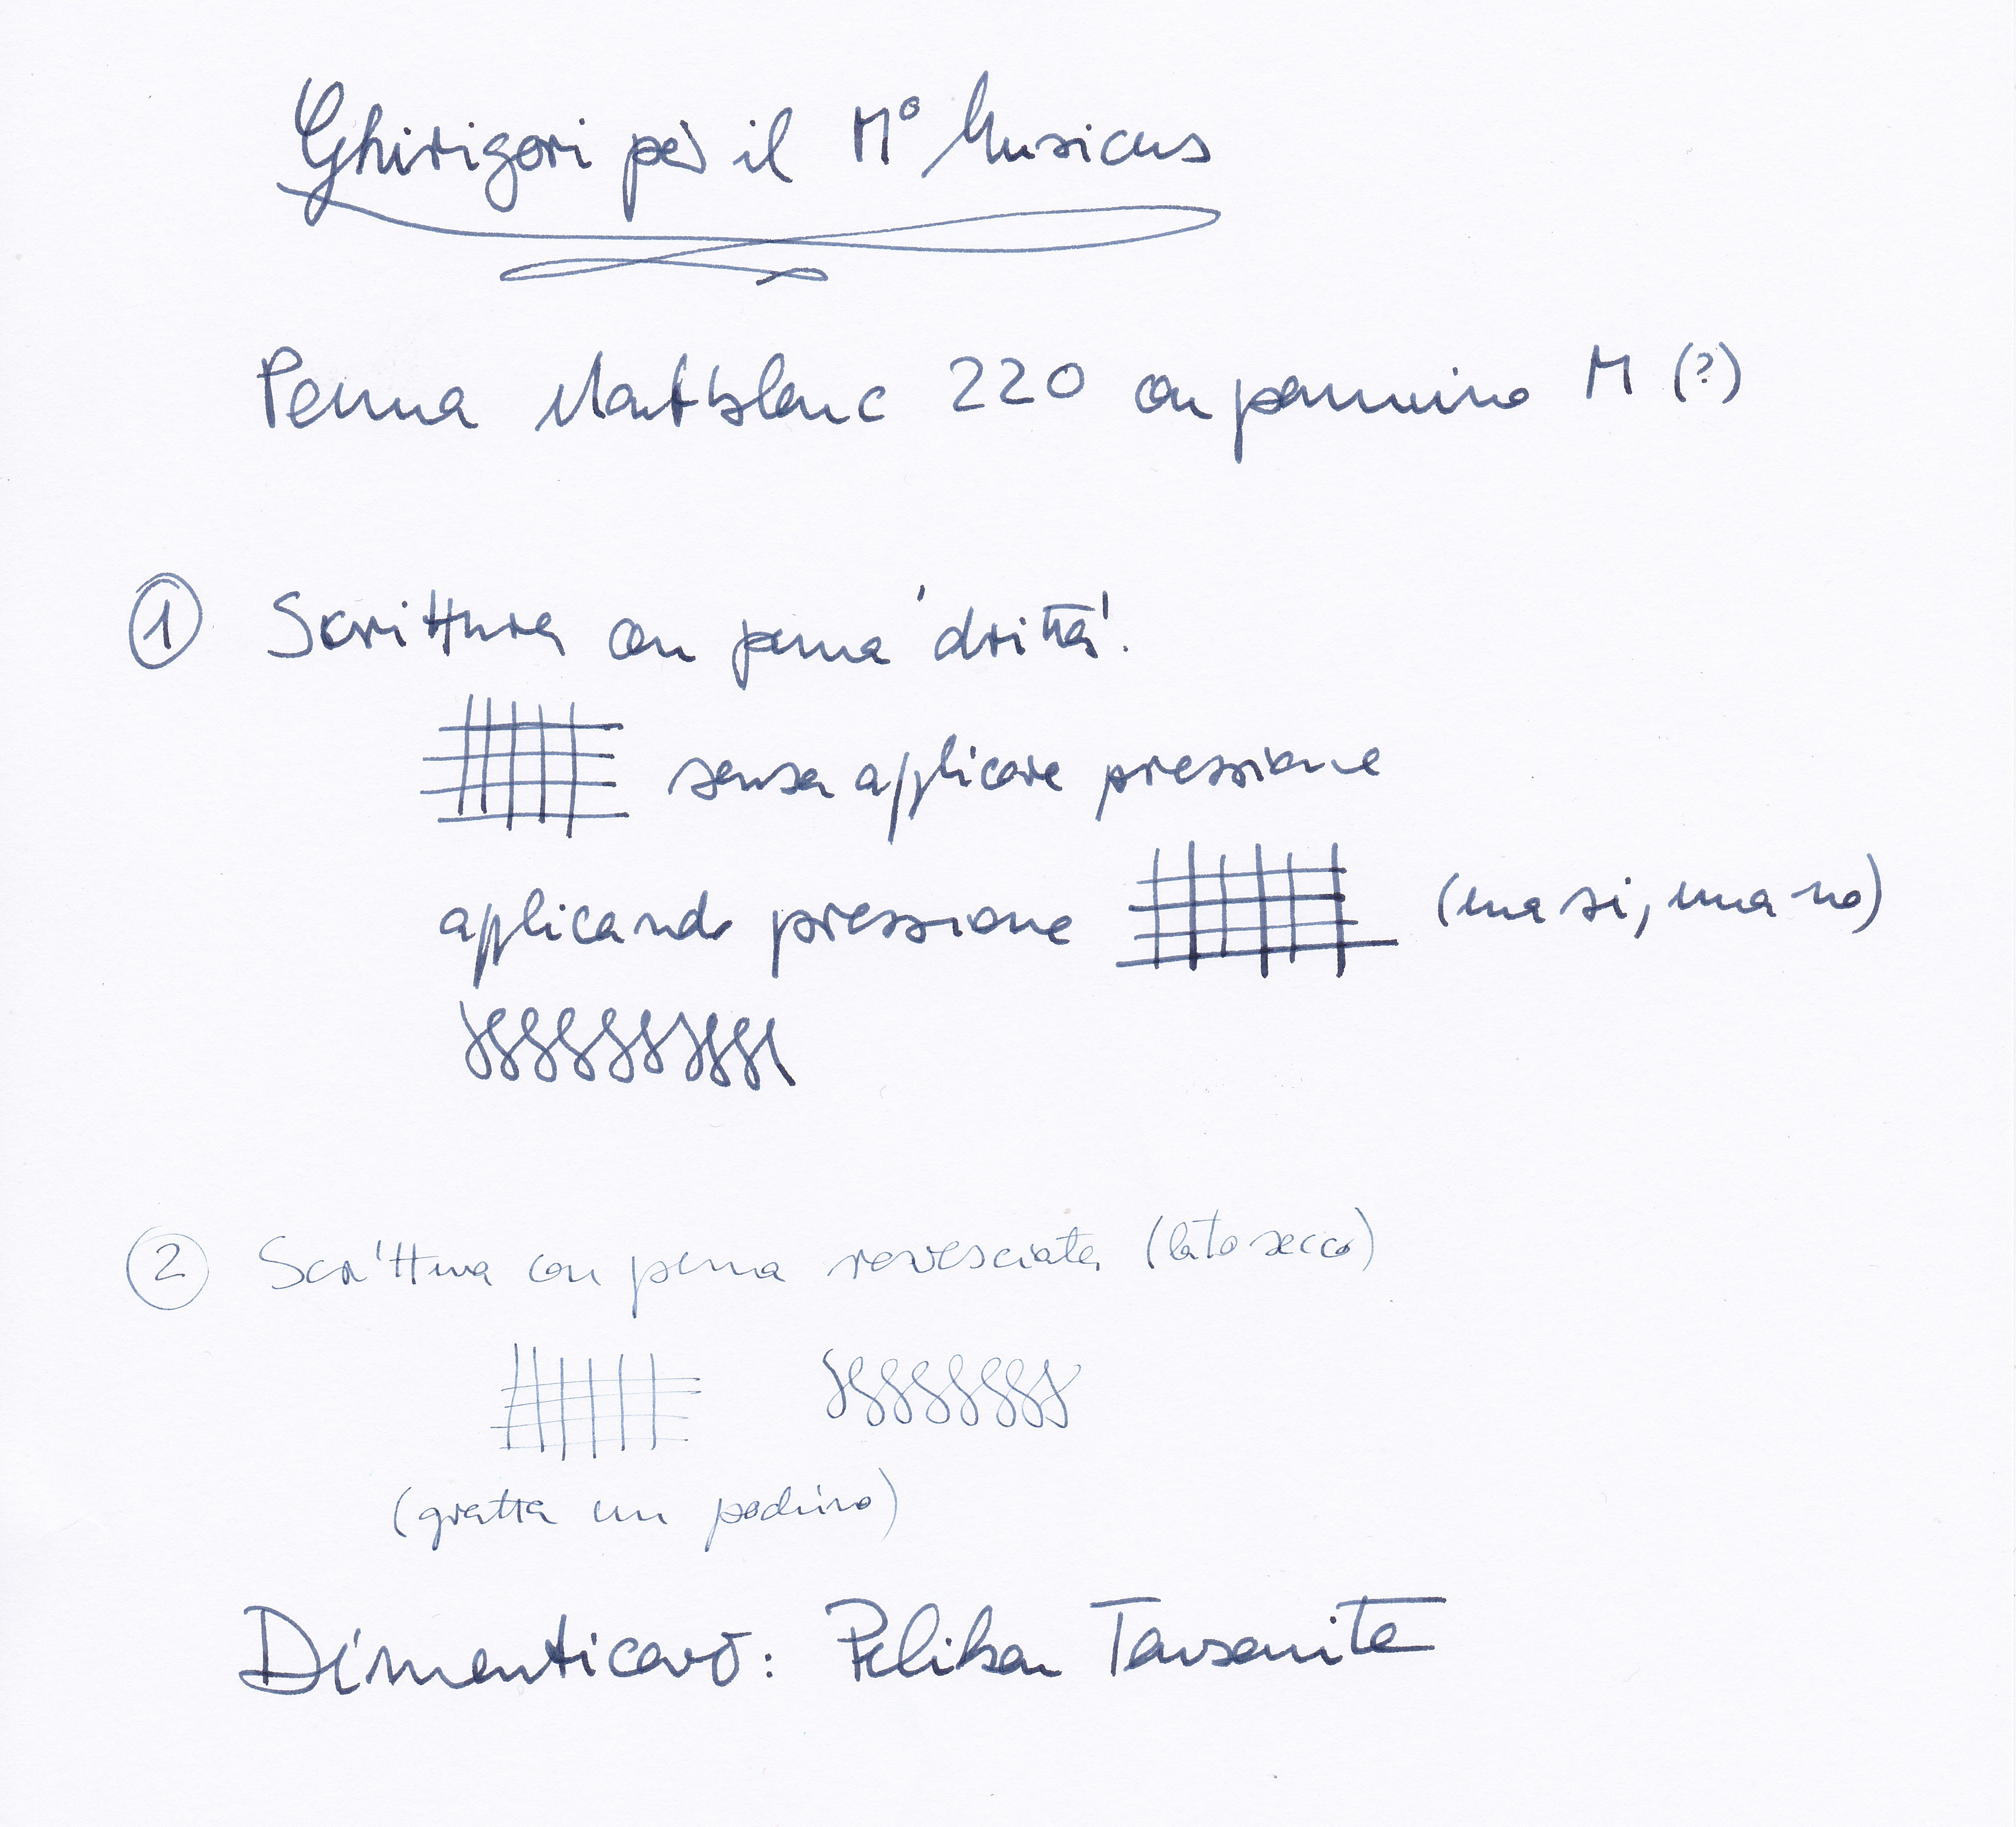 Ghirigori per il M° Musicus
Penna Montblanc 220 con pennino M (?)
1 Scrittura con penna 'dritta'.
senza applicare pressione
applicando pressione (una si, una no)
2 Scrittura con penna rovesciata (lato secco)
(gratta un pochino)
Dimenticavo: Pelikan Tanzanite